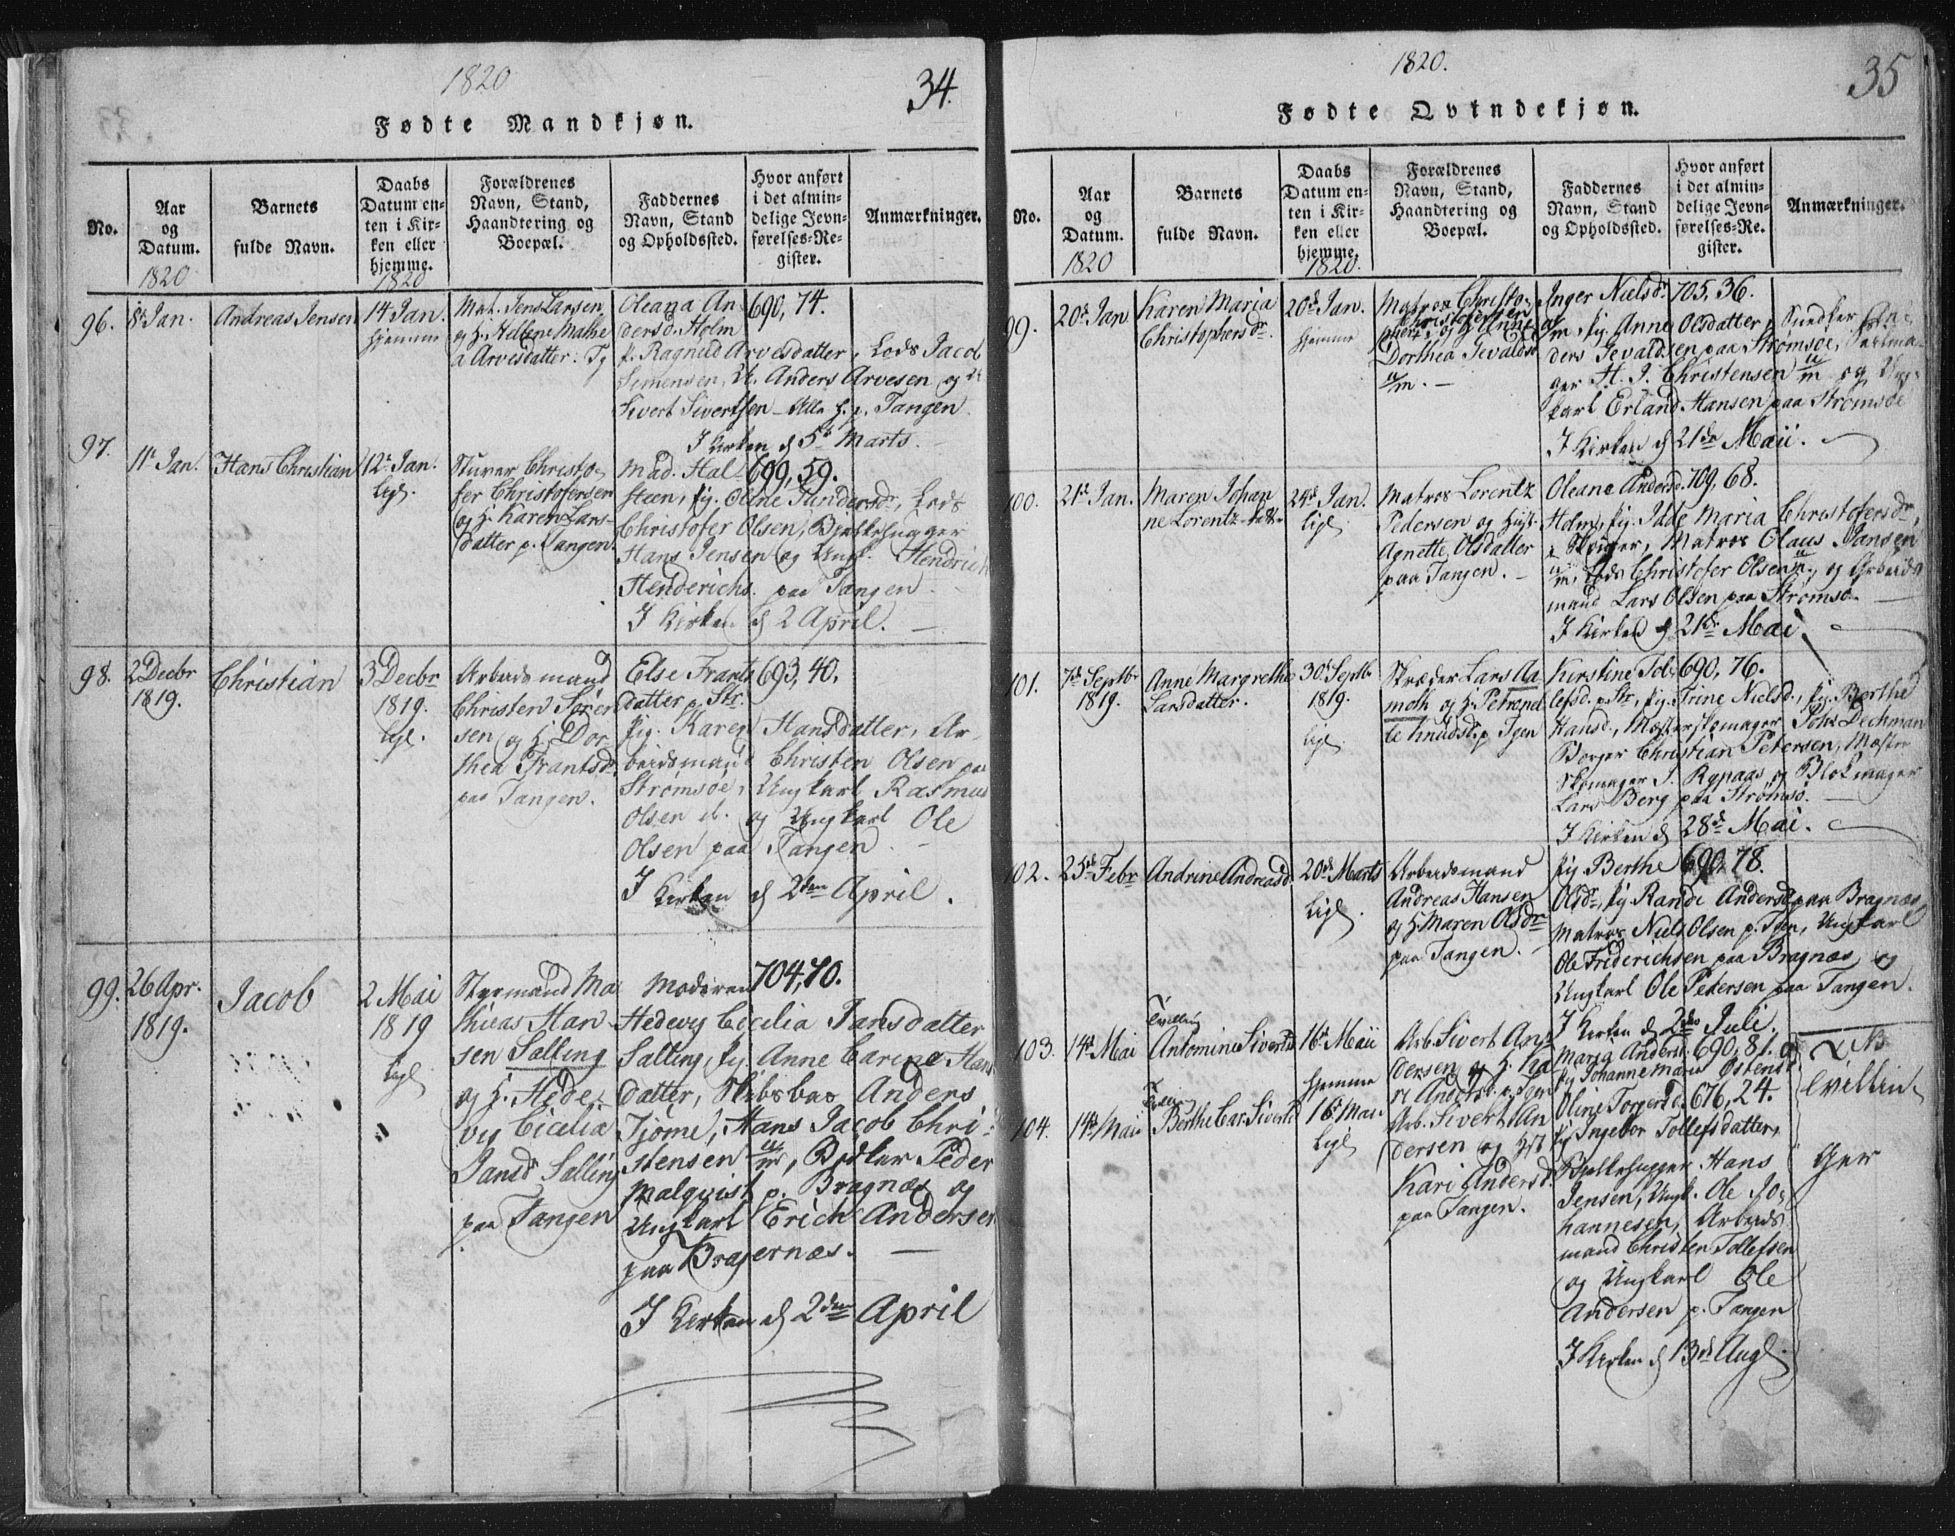 1820
34.
Fødte Mandkjøn.
No.
Aar
og
Datum.
1820
Barnets
fulde Navn.
Daabs
Datum en-
ten i Kir-
ken eller
hjemme.
1820
Forældrenes
Navn, Stand,
Haandtering og
Boepæl.
Faddernes
Navn, Stand
og Opholdssted.
Hvor anført
i det almin-
delige Jevn-
førelses-Re-
gister.
Anmærkninger.
96.
8 Jan.
Andreas Jensen
14 Jan.
hjemme
Mat. Jens Larsen
og H. Hellene Mathe
a Arvesdatter. Tg
Oleana An-
dersd. Holm
p. Ragnild Arvesdatter, Lods Jacob
Simensen, U. Anders Arvesen og
Sivert Sivertsen - Alle h. p. Tangen.
I Kirken d 5t Marts.
690, 74.
97.
11t Jan.
Hans Christian
12t Jan.
lige.
Stuver Christo-
fer Christofersen
og H. Karen Lars-
datter p. Tangen.
Mad. Hal-
steen, pig. Oline Sandersdr, Lods
Christofer Olsen, Bjelkehugger
Hans Jensen og Ungk. Hendrich
Henderichs. paa Tangen.
I Kirken d 2 April.
699, 59.
98.
2 Decbr
1819.
Christian
3 Decbr
1819.
lige.
Arbeidsmand
Christen Søren
sen og H. Dor-
thea Frantsd.
paa Tangen.
Else Frants
datter p. Str.
pig. Karen Hansdatter, Ar-
beidsmand Christen Olsen paa
Strømsøe, Ungkarl Rasmus
Olsen og Ungkarl Ole
Olsen paa Tangen.
I Kirken d 2den April.
693, 40.
99.
26 Apr.
1819.
Jacob
2 Mai
1819
lige
Styrmand Ma
thias Han-
sen Salling
og H. Hede-
vig Cicilia
Jansdr Salling
paa Tangen
Moderen
Hedevig Cicilia Jansdatter
Salling, pig Anne Carine Hans
datter, Skibsbas Anders
Tjøme, Hans Jacob Chri-
stensen u/m, Bødker Peder
Malqvist p. Bragnæs og
Ungkarl Erich Andersen
paa Bragernæs.
I Kirken d 2den April
704, 70.
1820.
35
Fødte Qvindekjøn.
No.
Aar
og
Datum.
1820
Barnets
fulde Navn.
Daabs
Datum en-
ten i Kir-
ken eller
hjemme.
1820.
Forældrenes
Navn, Stand,
Haandtering og
Boepæl.
Faddernes
Navn, Stand
og Opholdssted.
Hvor anført
i det almin-
delige Jevn-
førelses-Re-
gister.
Anmærkninger.
99.
20t Jan
Karen Maria
Christophersdr.
20de Jan.
hjemme
Matros Christo-
Christofersen
og H. Anne
Dorthea Gevaldsd
u/m.
Inger Nielsdr.
u/m, pig. Anne Olsdatter, Snedker An-
ders Gevaldsen paa Strømsøe, Seilma-
ger H. J. Christensen u/m og Ung-
karl Erland Hansen paa Strømsøe
I Kirken d 21de Maii.
705, 36.
100.
21t Jan.
Maren Johan
ne Lorentz-datt.
24de Jan.
lige
Matros Lorentz
Pedersen og Hust.
Agnette Olsdatter
paa Tangen.
Oleane Andersd.
Holm, pig. Idde Maria Christofersdr,
Matros Olaus Jansen
u/m, Lods Christofer Olsen u/m, og Arbeids
mand Lars Olsen paa Strømsø.
I Kirken d 21de Mai.
709, 68.
101.
7de Septbr
1819.
Anne Margrethe
Larsdatter.
30t Septb.
1819.
lige
Skræder Lars Aa
moth og H. Petronel
le Knudsd. p. Tgen
Kirstine Tol-
lefsd. p. Str, pig. Trine Nielsd., pig. Berthe
Hansd., Mester skomager Johs Dechman
Borger Christian Petersen, Mester
skomager J. Rypaas og Blokmager
Lars Berg paa Strømsø.
I Kirken d 28de Mai.
690, 76.
102.
25de Febr
Andrine Andreasd.
20de Marts
Lige.
Arbeidsmand
Andreas Hansen
og H. Maren Olsdr
paa Tangen.
pig Berthe
Olsdr, pig. Rande Andersd paa Bragnæs
Matros Niels Olsen p. Tgen, Ungkarl
Ole Friderichsen paa Bragnæs og
Ungkarl Ole Petersen paa Tangen.
I Kirken d 2den Juli.
690, 78.
103.
14t Mai
Tvilling
Antomine Sivertsd
16t Maii
hjemme
Arb. Sivert An-
dersen og H. Ka-
ri Andersd. p. Tgen
Maria Andersd.
pig Johanne Marie Ostensd
690, 81.
NB
Tvillin
ger
104.
14de Mai
Berthe Car. Sivertsd
16t Mai
lige
Arb. Sivert An
dersen og Hst
Kari Andersd.
paa Tangen.
Oline Torgersd.
pig Ingebor Tollefsdatter,
Bjelkehugger Hans
Jensen, Ungk. Ole Jo-
hannesen, Arbeids
mand Christen Tollefsen
og Ungkarl Ole
Andersen p. Tangen
I Kirken d 13de Aug.
676, 24.